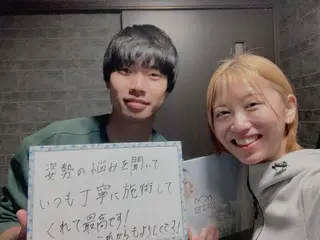 姿勢の悩みを聞いて
いつも丁寧に施術して
くれて最高です!
これからもよろしくです!